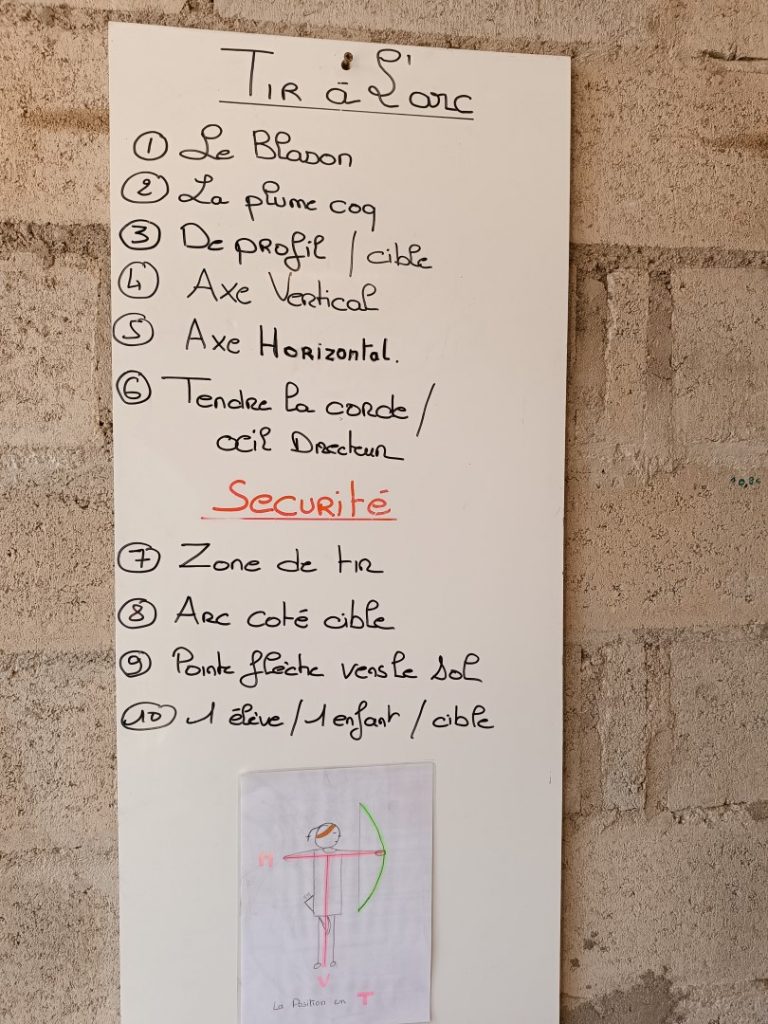 TIR à L'arc
① Le Blason
② La plume coq
③ De profil / cible
④ Axe Vertical
⑤ Axe Horizontal.
⑥ Tendre la corde /
œil Directeur
Securité
⑦ Zone de tir
⑧ Arc coté cible
⑨ Pointe flèche vers le sol
⑩ 1 élève / 1 enfant / cible
H
V
La Position en T